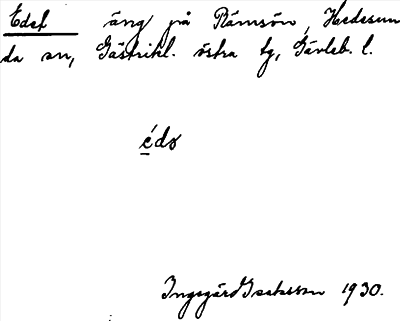 Edet äng på Rämsön, Hedesun
da sn, Gästrikl. östra tg, Gävleb. l.
é̱də
Ingegärd Isaksson 1930.